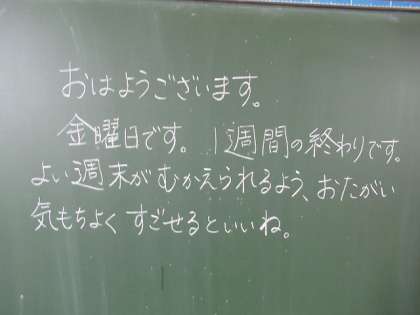 おはようございます。
金曜日です。1週間の終わりです。
よい週末がむかえられるよう、おたがい
気もちよくすごせるといいね。